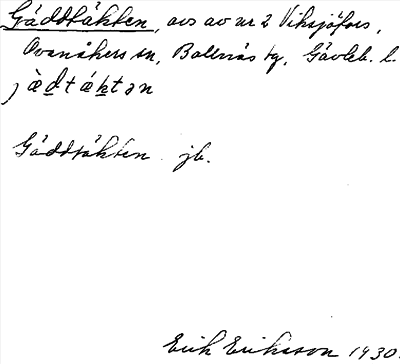 Gäddtäkten, avs av nr 2 Viksjöfors,
Ovanåkers sn, Bollnäs tg, Gävleb. l.
Gäddtäkten jb.
Erik Eriksson 1930.